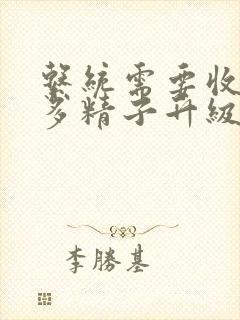 繫統需要收
多精子升級
李勝基